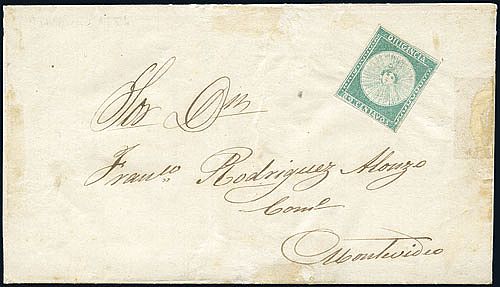 DILIGENCIA
80 CENTAVOS
Sor Dn
Franco Rodriguez Alonzo
Come
Montevideo